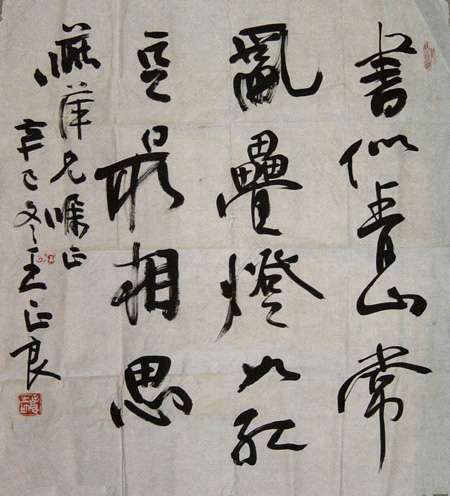 書似青山常
亂疊燈如紅
豆最相思
萍兄嘱正
辛巳冬王正良